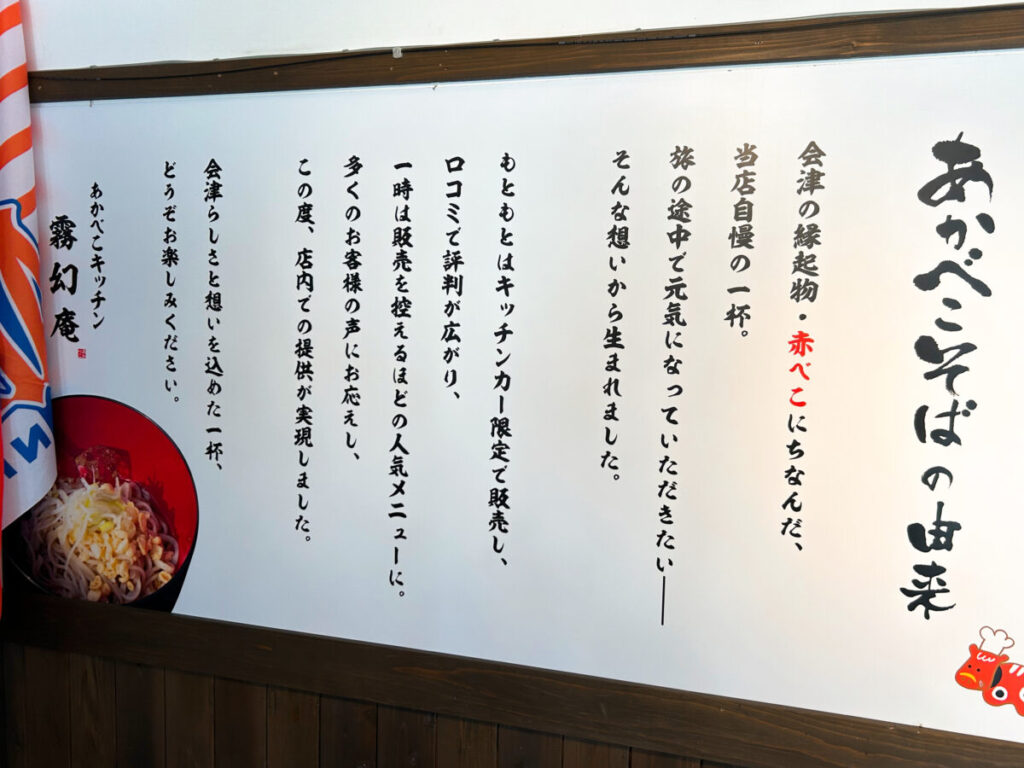 あかべこそばの由来
会津の縁起物・赤べこにちなんだ、
当店自慢の一杯。
旅の途中で元気になっていただきたい――
そんな想いから生まれました。
もともとはキッチンカー限定で販売し、
口コミで評判が広がり、
一時は販売を控えるほどの人気メニューに。
多くのお客様の声にお応えし、
この度、店内での提供が実現しました。
会津らしさと想いを込めた一杯、
どうぞお楽しみください。
あかべこキッチン
霧幻庵